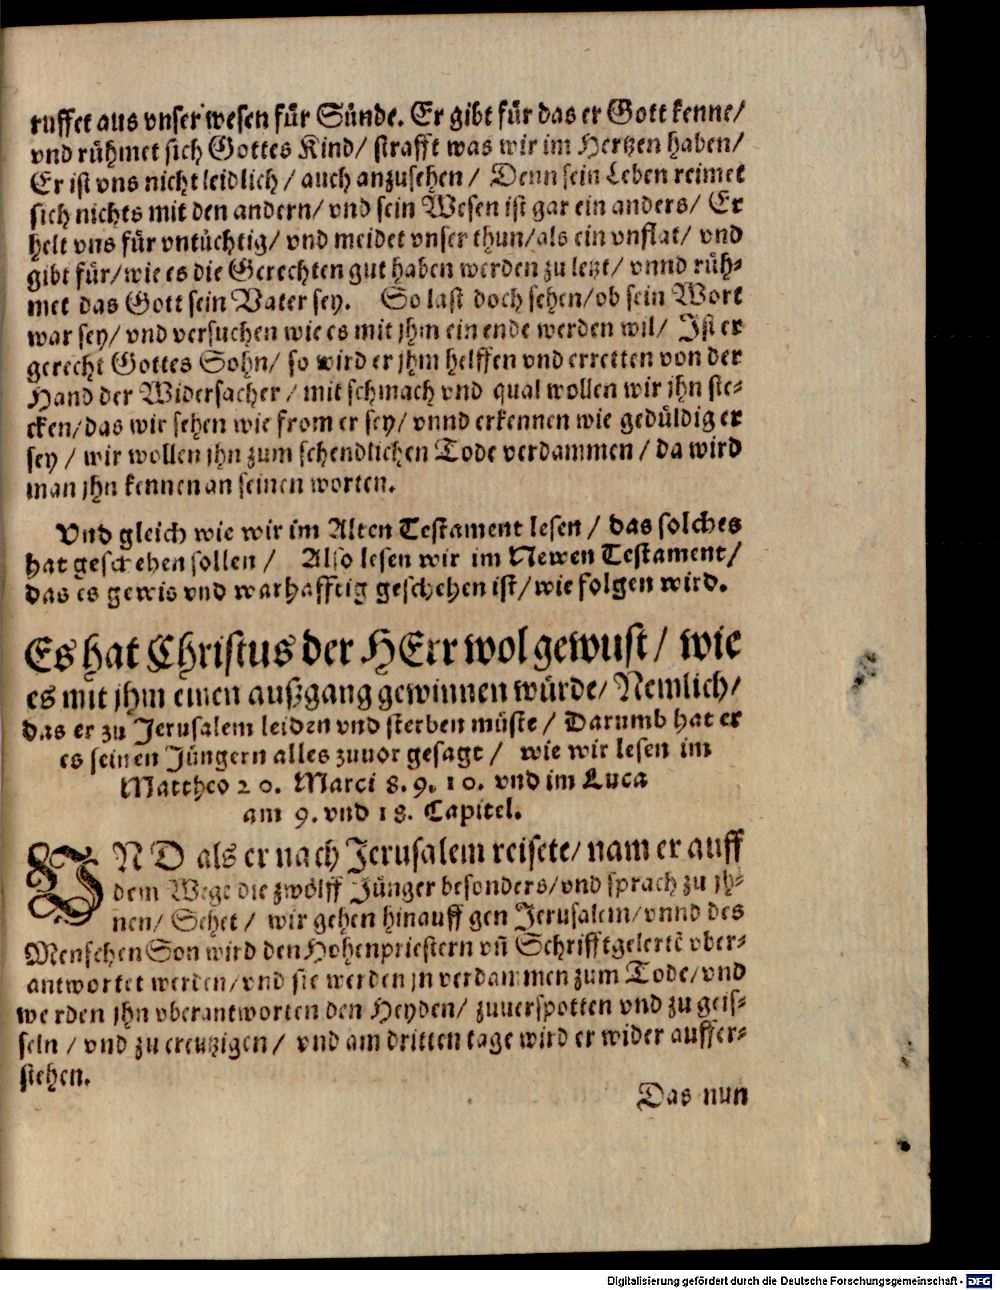 ruffet aus vnser wesen für Sünde. Er gibt für das er Gott kenne/
vnd rühmet sich Gottes Kind/ strafft was wir im Hertzen haben/
Er ist vns nicht leidlich / auch anzusehen / Denn sein Leben reimet
sich nichts mit den andern/ vnd sein Wesen ist gar ein anders/ Er
helt vns für vntüchtig/ vnd meidet vnser thun/als ein vnflat/ vnd
gibt für/wie es die Gerechten gut haben werden zu letzt/ vnnd rüh-
met das Gott sein Vater sey. So last doch sehen/ob sein Wort
war sey/ vnd versuchen wie es mit jhm ein ende werden wil/ Ist er
gerecht Gottes Sohn/ so wird er jhm helffen vnd erretten von der
Hand der Widersacher / mit schmach vnd qual wollen wir jhn ste-
cken/das wir sehen wie from er sey/ vnnd erkennen wie gedüldig er
sey / wir wollen jhn zum schendlichen Tode verdammen / da wird
man jhn kennen an seinen worten.
Vnd gleich wie wir im Alten Testament lesen / das solches
hat geschehen sollen / Also lesen wir im Newen Testament/
das es gewis vnd warhafftig geschehen ist/wie folgen wird.
Es hat Christus der HErr wol gewust/ wie
es mit jhm einen außgang gewinnen würde/ Nemlich/
das er zu Jerusalem leiden vnd sterben müste / Darumb hat er
es seinen Jüngern alles zuuor gesagt / wie wir lesen im
Mattheo 20. Marci 8. 9. 10. vnd im Luca
am 9. vnd 18. Capitel.
VND als er nach Jerusalem reisete/ nam er auff
dem Wege die zwölff Jünger besonders/vnd sprach zu jh-
nen/ Sehet / wir gehen hinauff gen Jerusalem/vnnd des
Menschen Son wird den Hohenpriestern vñ Schrifftgelertē vber-
antwortet werden/vnd sie werden jn verdammen zum Tode/vnd
werden jhn vberantworten den Heyden/ zuuerspotten vnd zu geis-
seln / vnd zu creutzigen / vnd am dritten tage wird er wider auffer-
stehen.
Das nun
Digitalisierung gefördert durch die Deutsche Forschungsgemeinschaft - DFG